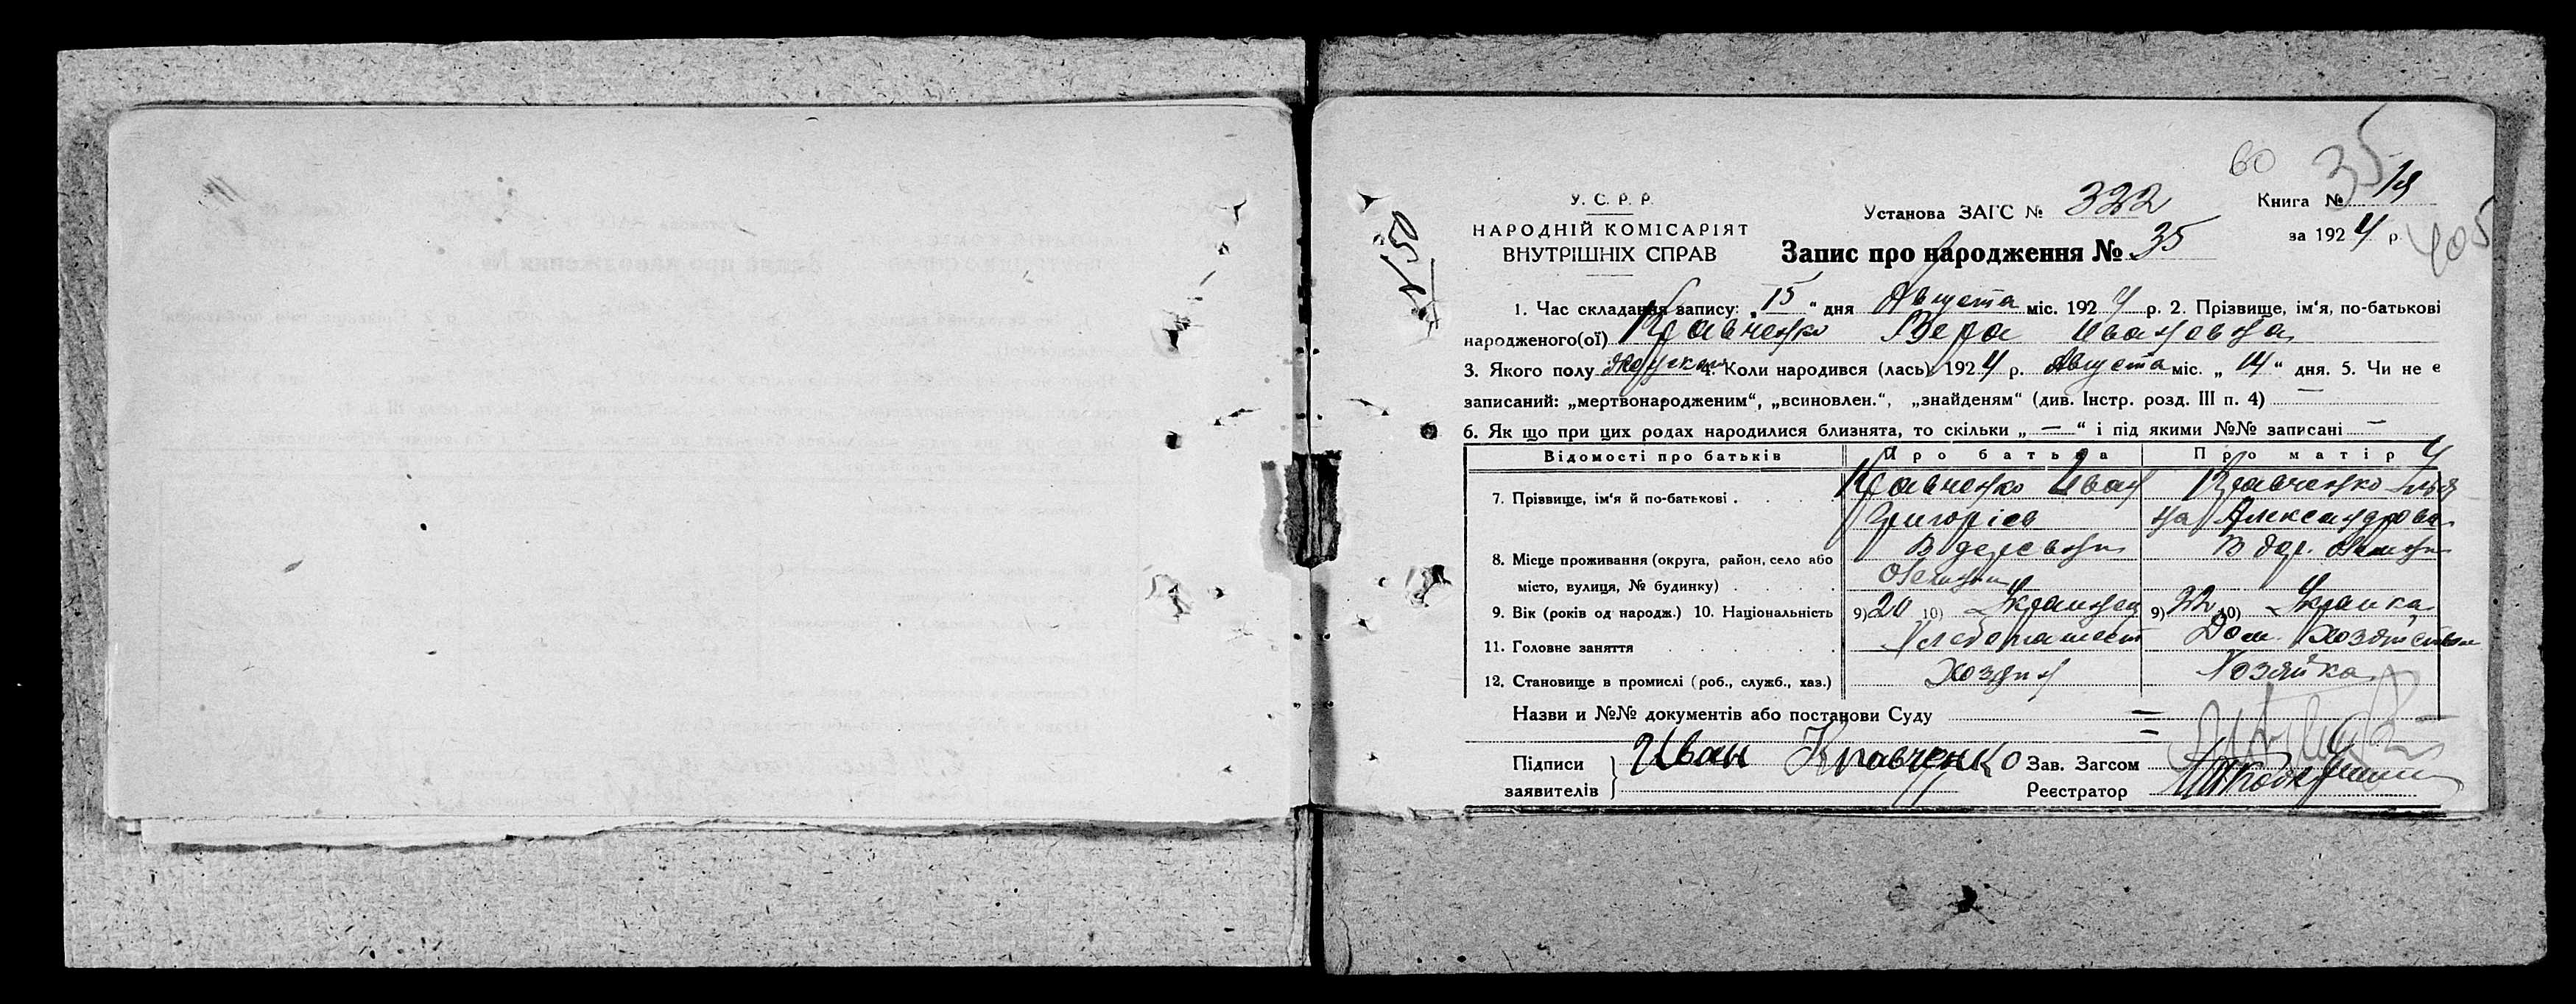 60 35
У. С. Р. Р. Установа ЗАГС № 322 Книга № 19
НАРОДНІЙ КОМІСАРІЯТ
ВНУТРІШНІХ СПРАВ Запис про народження № 35 за 1924 р. 405
№ 50
1. Час складання запису: „15“ дня Августа міс. 1924 р. 2. Прізвище, ім'я, по-батькові
народженого(ої) Кравченко Вера Ивановна
3. Якого полу 4. Коли народився (лась) 1924 р. Августа міс. „14“ дня. 5. Чи не є
записаний: „мертвонародженим“, „всиновлен.“, „знайденям“ (див. Інстр. розд. III п. 4) —
6. Як що при цих родах народилися близнята, то скільки „—“ і під якими №№ записані —
Відомості про батьків Про батька Про матір
7. Прізвище, ім'я й по-батькові . Кравченко Иван Кравченко
Григоріев на Александрова
8. Місце проживання (округа, район, село або В деревни В дер.
місто, вулиця, № будинку)
9. Вік (років од народж.) 10. Національність 9) 20 10) Украинец 9) 22 10) Украинка
11. Головне заняття Хлебопашест Дом. хозяйство
12. Становище в промислі (роб., служб., хаз.) Хозяин Хозяйка
Назви и №№ документів або постанови Суду =
=
Підписи Иван Кравченко Зав. Загсом
заявителів Реєстратор